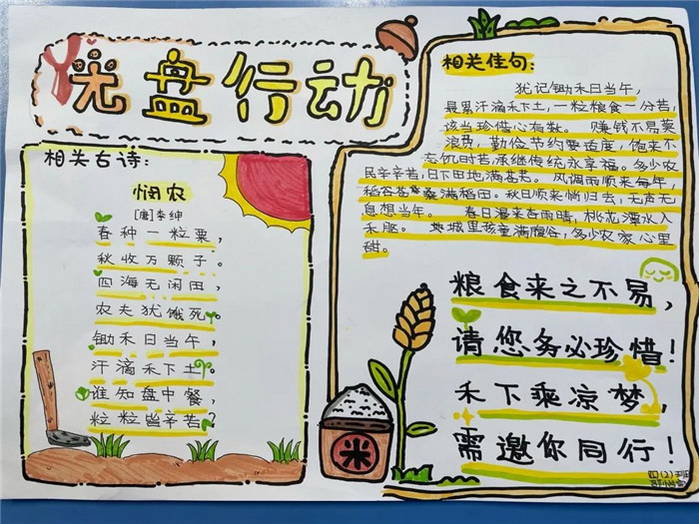 光盘行动
相关古诗:
悯农
[唐]李绅
春种一粒粟,
秋收万颗子。
四海无闲田,
农夫犹饿死。
锄禾日当午,
汗滴禾下土。
谁知盘中餐,
粒粒皆辛苦?
相关佳句:
犹记锄禾日当午,
最累汗滴禾下土,一粒粮食一分苦,
该当珍惜心有数。 赚钱不易莫
浪费,勤俭节约要适度,饱来不
忘饥时苦,承继传统永享福。多少农
民辛辛苦,日下田地满苍老。风调雨顺来每年,
稻谷苍桑满稻田。秋日顺来悄归去,无声无
息想当年。 春日瀑来杏雨晴,桃花潭水入
禾脉。 城里孩童满腹谷,多少农家心里
甜。
粮食来之不易,
请您务必珍惜!
禾下乘凉梦,
需邀你同行!
米
四(2)班